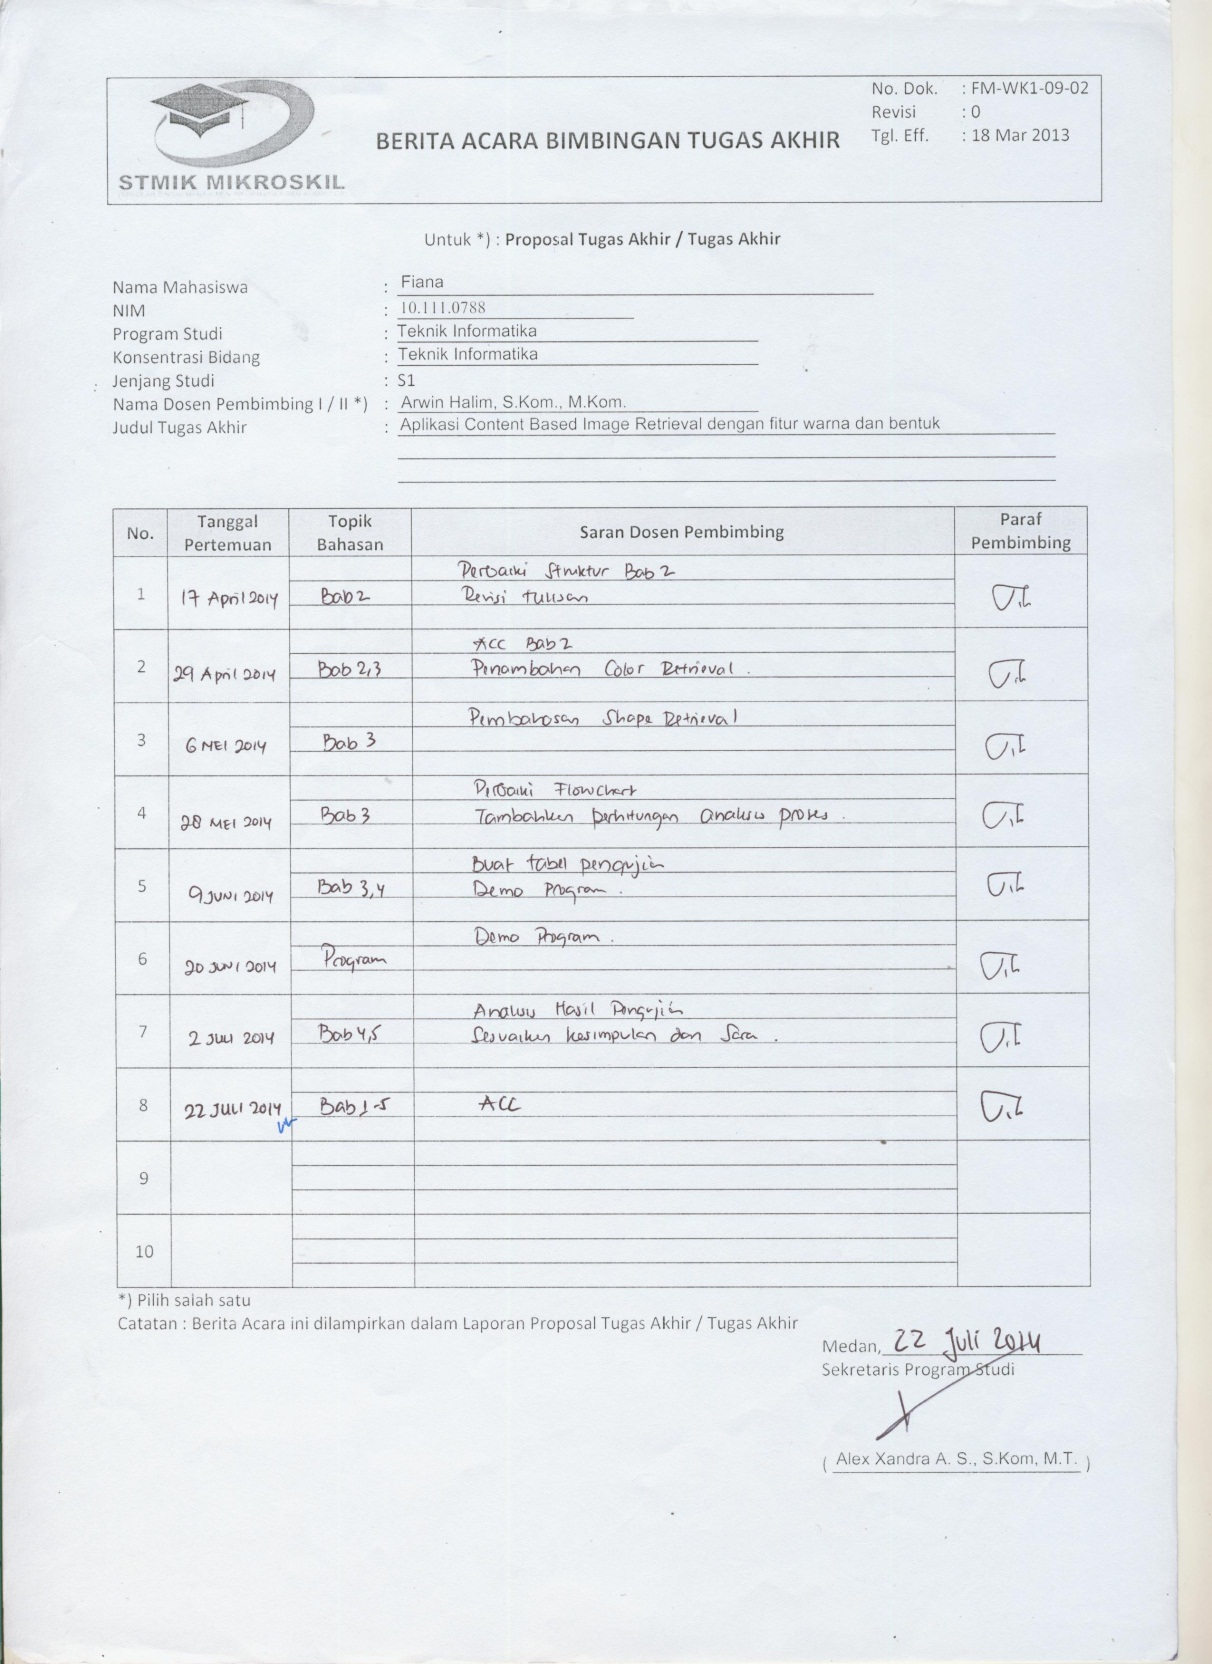 STMIK MIKROSKIL
BERITA ACARA BIMBINGAN TUGAS AKHIR
No. Dok. : FM-WK1-09-02
Revisi : 0
Tgl. Eff. : 18 Mar 2013
Untuk *) : Proposal Tugas Akhir / Tugas Akhir
Nama Mahasiswa : Fiana
NIM : 10.111.0788
Program Studi : Teknik Informatika
Konsentrasi Bidang : Teknik Informatika
Jenjang Studi : S1
Nama Dosen Pembimbing I / II *) : Arwin Halim, S.Kom., M.Kom.
Judul Tugas Akhir : Aplikasi Content Based Image Retrieval dengan fitur warna dan bentuk
No. Tanggal Pertemuan Topik Bahasan Saran Dosen Pembimbing Paraf Pembimbing
Perbaiki Struktur Bab 2
1 17 April 2014 Bab 2 Revisi tulisan
ACC Bab 2
2 29 April 2014 Bab 2,3 Penambahan Color Retrieval .
Pembahasan Shape Retrieval
3 6 MEI 2014 Bab 3
Perbaiki Flowchart
4 28 MEI 2014 Bab 3 Tambahkan perhitungan analisis proses .
Buat tabel pengujian
5 9 JUNI 2014 Bab 3,4 Demo Program .
Demo Program .
6 20 JUNI 2014 Program
Analisis Hasil Pengujian
7 2 JULI 2014 Bab 4,5 Sesuaikan kesimpulan dan Sara .
8 22 JULI 2014 Bab 1-5 ACC
9
10
*) Pilih salah satu
Catatan : Berita Acara ini dilampirkan dalam Laporan Proposal Tugas Akhir / Tugas Akhir
Medan, 22 Juli 2014
Sekretaris Program Studi
( Alex Xandra A. S., S.Kom, M.T. )